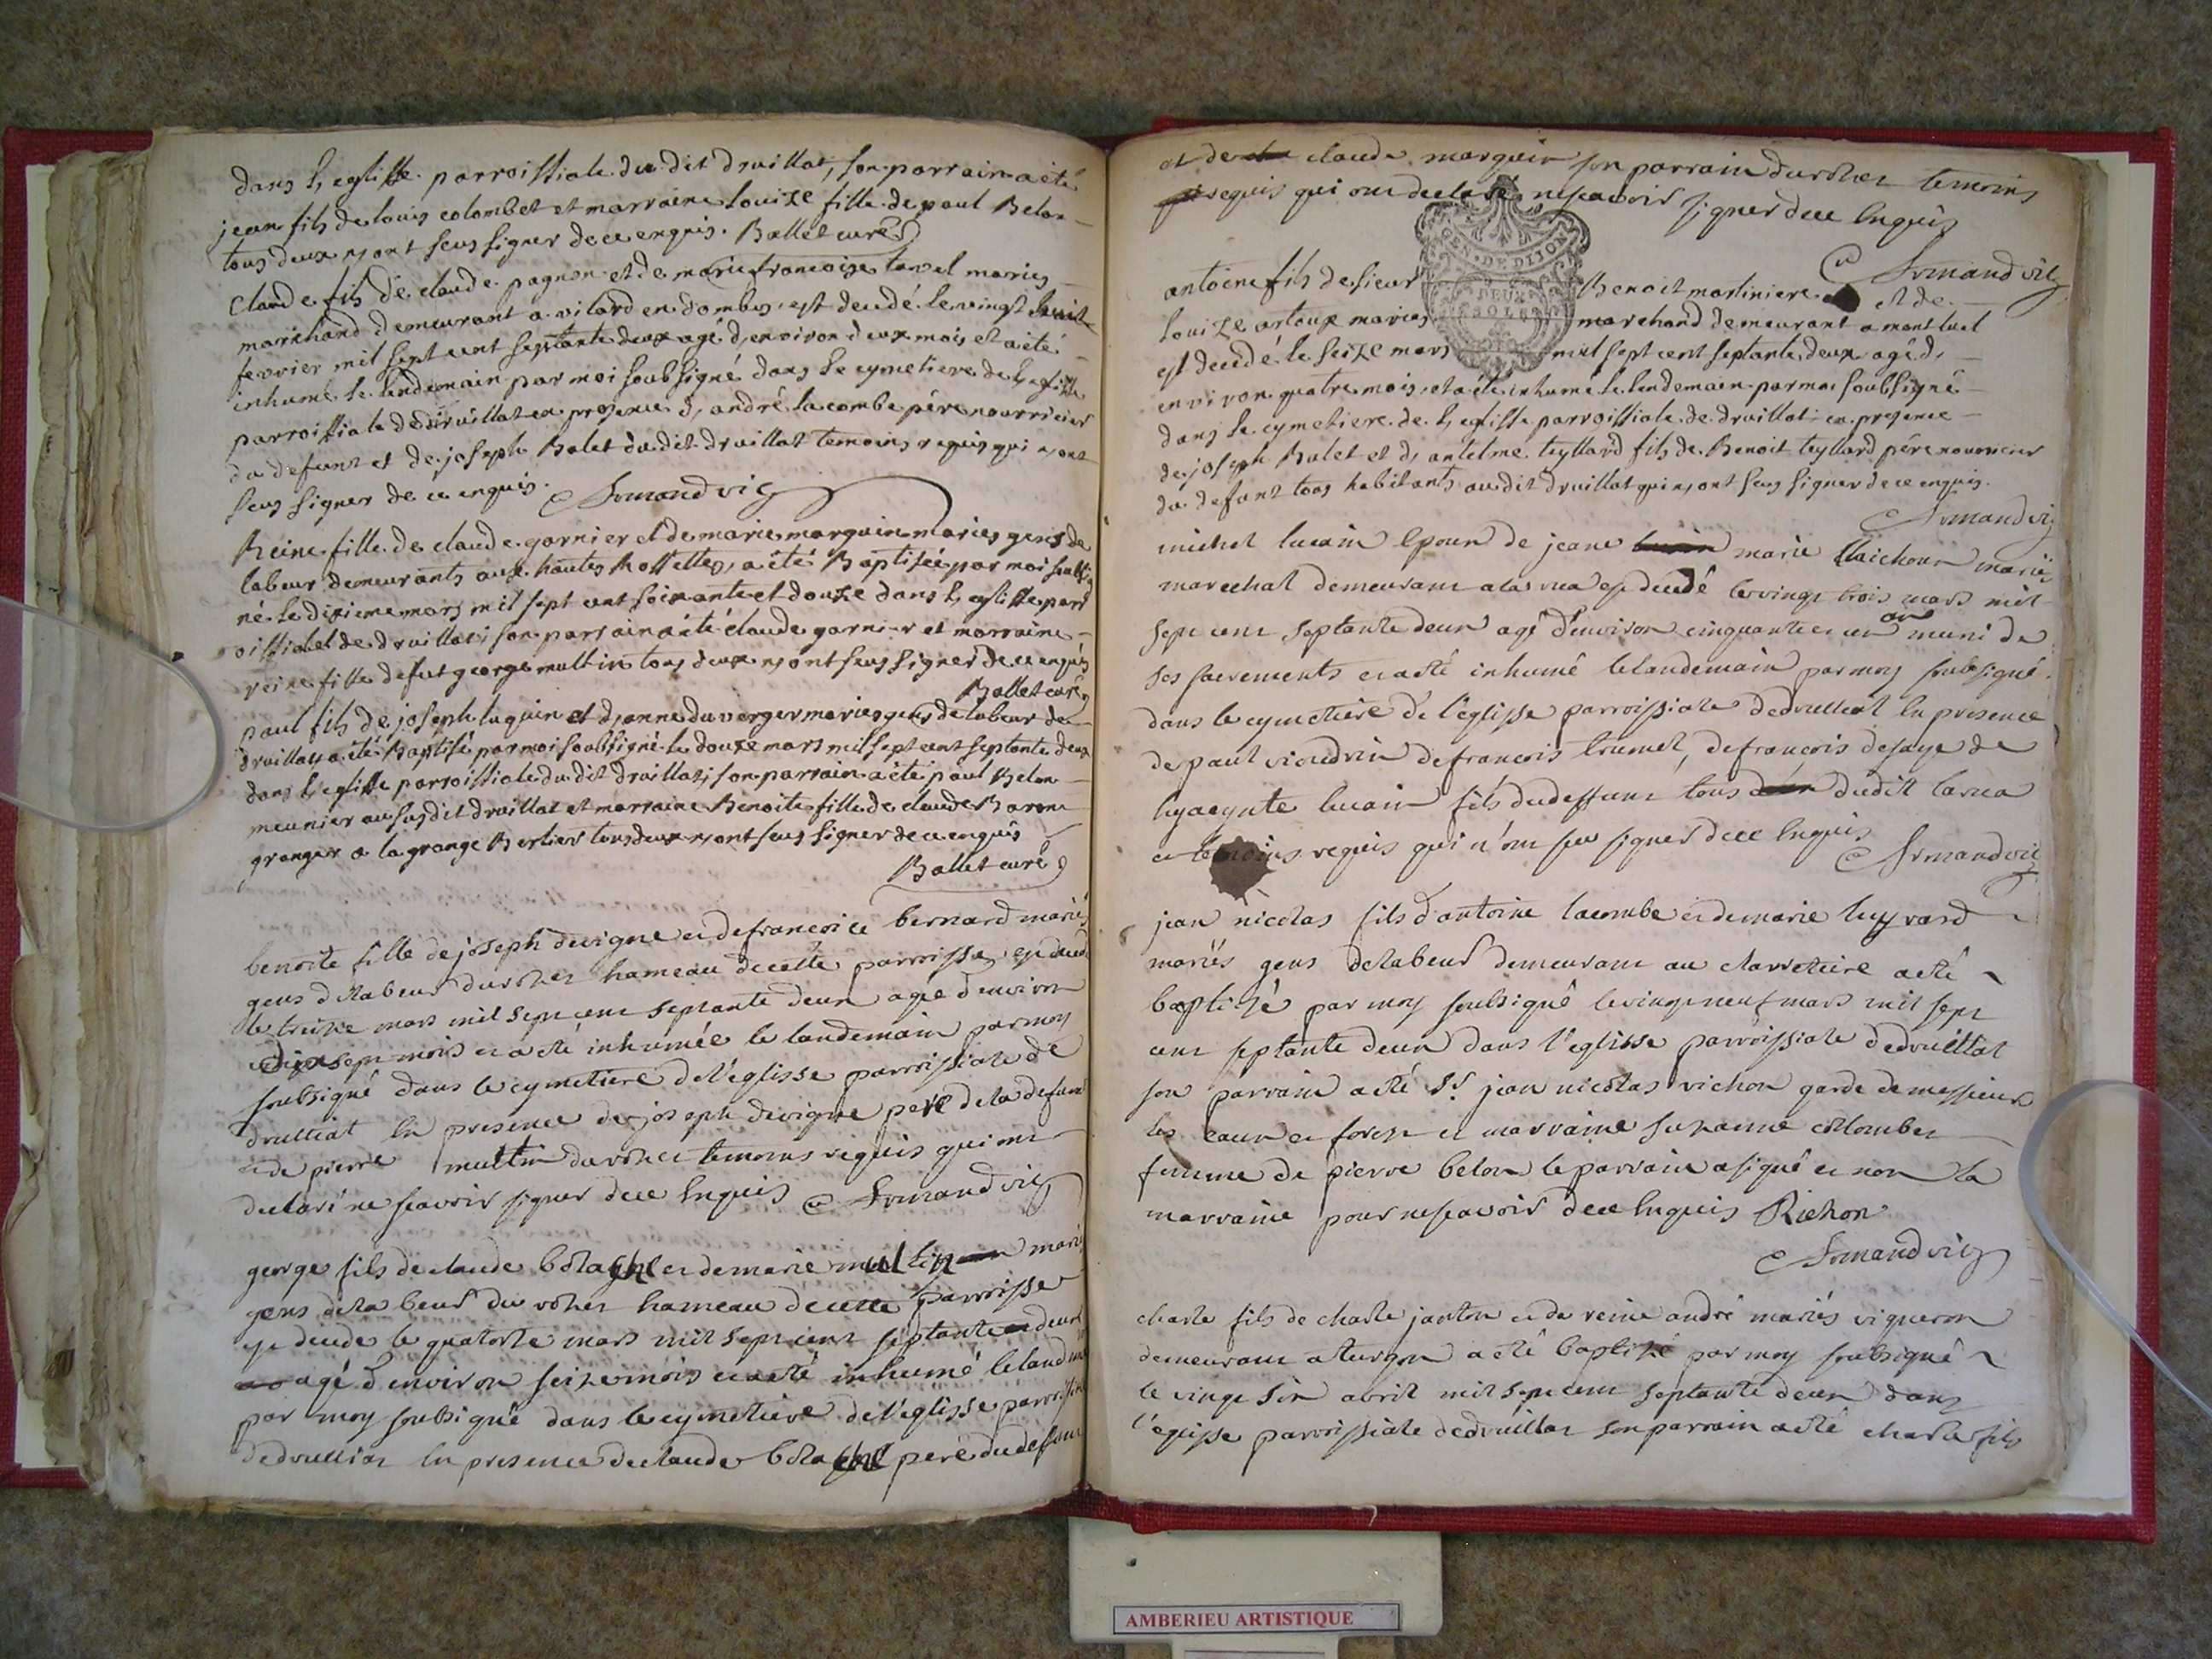 dans l, eglisse parroissiale du dit druillat, son parrain a été
jean fils de louis colombet et marraine louize fille de paul Belon
tous deux n, ont seus signer de ce enquis. Ballet curé
Claude fils de claude pagnon et de marie francoise tavel maries
marchand demeurant a vilard en dombes est decedé le vingt huit
fevrier mil sept cent septante deux agé d, environ deux mois et a été
inhumé le lendemain par moi soubsigné dans le cymetiere de l, eglisse
parroissiale de druillat en presence d, andré lacombe pére nourricier
du defunt et de joseph Balet du dit druillat temoins requis qui n, ont
seus signer de ce enquis. Armand vic
Reine fille de claude garnier et de marie marquin maries gens de
labeur demeurants aux hautes Rossettes, a été Baptisée par moi soussi
né le dixieme mars mil sept cent soixante et douze dans l, eglisse parr
oissialet de druillat; son parrain a été claude garnier et marraine
reine fille de feut george multin tous deux n, ont seus signer de ce enquis
Ballet curé
paul fils de joseph luquin et d, anne du verger maries gens de labeur de
druillat, a été Baptisé par moi soubsigné le douze mars mil sept cent septante deux
dans l, eglisse parroissiale du dit druillat; son parrain a été paul Belon
meunier au susdit druillat et marraine Benoite fille de claude Baron
granger a la grange Berlier tous deux n, ont seus signer de ce enquis
Ballet curé
benoite fille de joseph devigne et de francoise bernard mariés
gens de labeur du rohet hameau de cette parroisse est deced
le treize mars mil sept cent septante deux agée d'environ
dix sept mois et a eté inhumée le landemain par moy
soubsigné dans le cymetiere de l'eglisse parroissiale de
druillat en presence de joseph devigne pere de la defun
et de pierre multin du rohet temoins requis qui ont
declaré ne scavoir signer de ce enquis Armand vic
george fils de claude et de marie multin marié
gens de labeur du rohet hameau de cette parroisse
est decede le quatorze mars mil sept cent septante deux
agé d'environ seize mois et a eté inhumé le landm
par moy soubsigné dans le cymetiere de l'eglisse parroissi
de druillat en presence de claude pere du defunt
et de claude marquin son parrain du rohet temoins
requis qui ont declaré ne scavoir signer de ce enquis
Armand vic
GEN. DE DIJON
DEUX
SOLS
antoine fils de sieur Benoit martiniere et de
louize artoux maries marchand demeurant a montluel
est decedé le seize mars mil sept cent septante deux agé d,
environ quatre mois, et a été inhumé le lendemain par moi soubsigné
dans le cymetiere de l, eglisse parroissiale de druillat en presence
de joseph Balet et d, antelme teyllard fils de Benoit teyllard pére nourricier
du defunt tous habitants au dit druillat qui n, ont seus signer de ce enquis.
Armand vic
michel lucain epoux de jeane marie mariés
marechal demeurant a la rua est decedé le vingt trois mars mil
sept cent septante deux agé d'environ cinquante et un an muni de
ses sacrements et a eté inhumé le landemain par moy soubsigné
dans le cymetiere de l'eglisse parroissiale de druillat en presence
de paul vioudrin de francois brumet, de francois desaye de
hyacynte lucain fils du deffunt tous dudit larua
et temoins requis qui n'ont seu signer de ce enquis
Armand vic
jean nicolas fils d'antoine lacombe et de marie
mariés gens de labeur demeurant au clarretiere a eté
baptizé par moy soubsigné le vingt neuf mars mil sept
cent septante deux dans l'eglisse parroissiale de druillat
son parrain a eté Sr. jean nicolas richon garde de messieurs
les eaux et forest et marraine suzanne colombet
femme de pierre belon le parrain a signé et non la
marraine pour ne scavoir de ce enquis Richon
Armand vic
charle fils de charle janton et de reine andré mariés vigneron
demeurant a turgon a eté baptizé par moy soubsigné
le vingt six avril mil sept cent septante deux dans
l'eglisse parroissiale de druillat son parrain a eté charle fils
AMBERIEU ARTISTIQUE